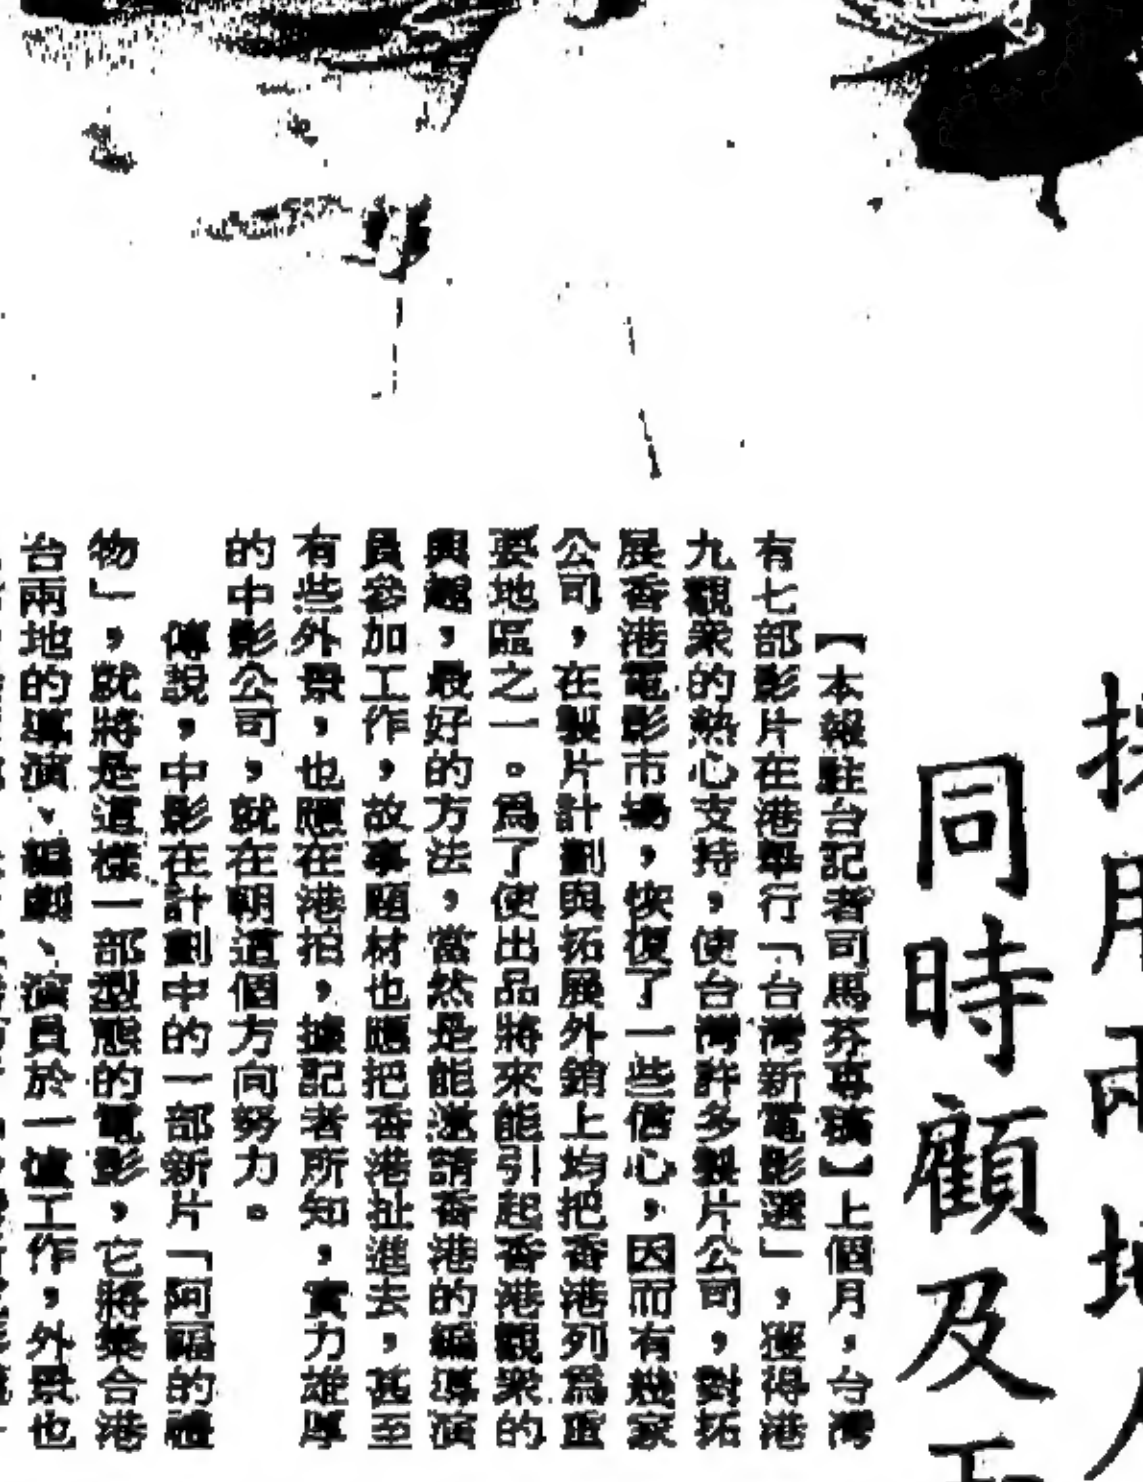 採用兩地人
同時顧及
【本報駐台記者司馬芬專稿】上個月，台灣
有七部影片在港舉行「台灣新電影選」，獲得港
九觀衆的熱心支持，使台灣許多製片公司，對拓
展香港電影市場，恢復了一些信心，因而有幾家
公司，在製片計劃與拓展外銷上均把香港列爲重
要地區之一。爲了使出品將來能引起香港觀衆的
興趣，最好的方法，當然是能邀請香港的編導演
員參加工作，故事題材也應把香港扯進去，甚至
有些外景，也應在港拍，據記者所知，實力雄厚
的中影公司，就在朝這個方向努力。
傳說，中影在計劃中的一部新片「阿福的禮
物」，就將是這樣一部型態的電影，它將集合港
台兩地的導演、編劇、演員於一爐工作，外景也